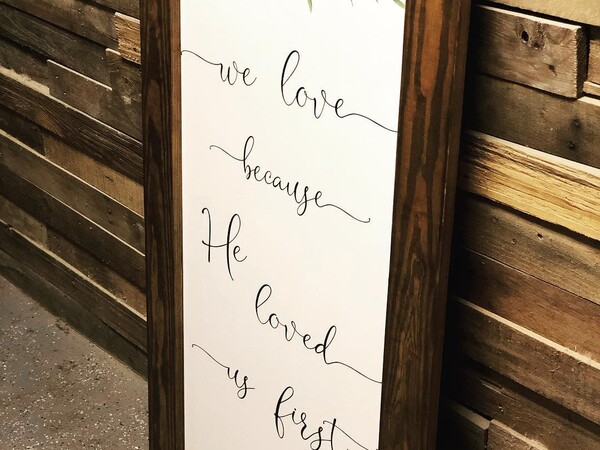 we love
because
He
loved
us
first